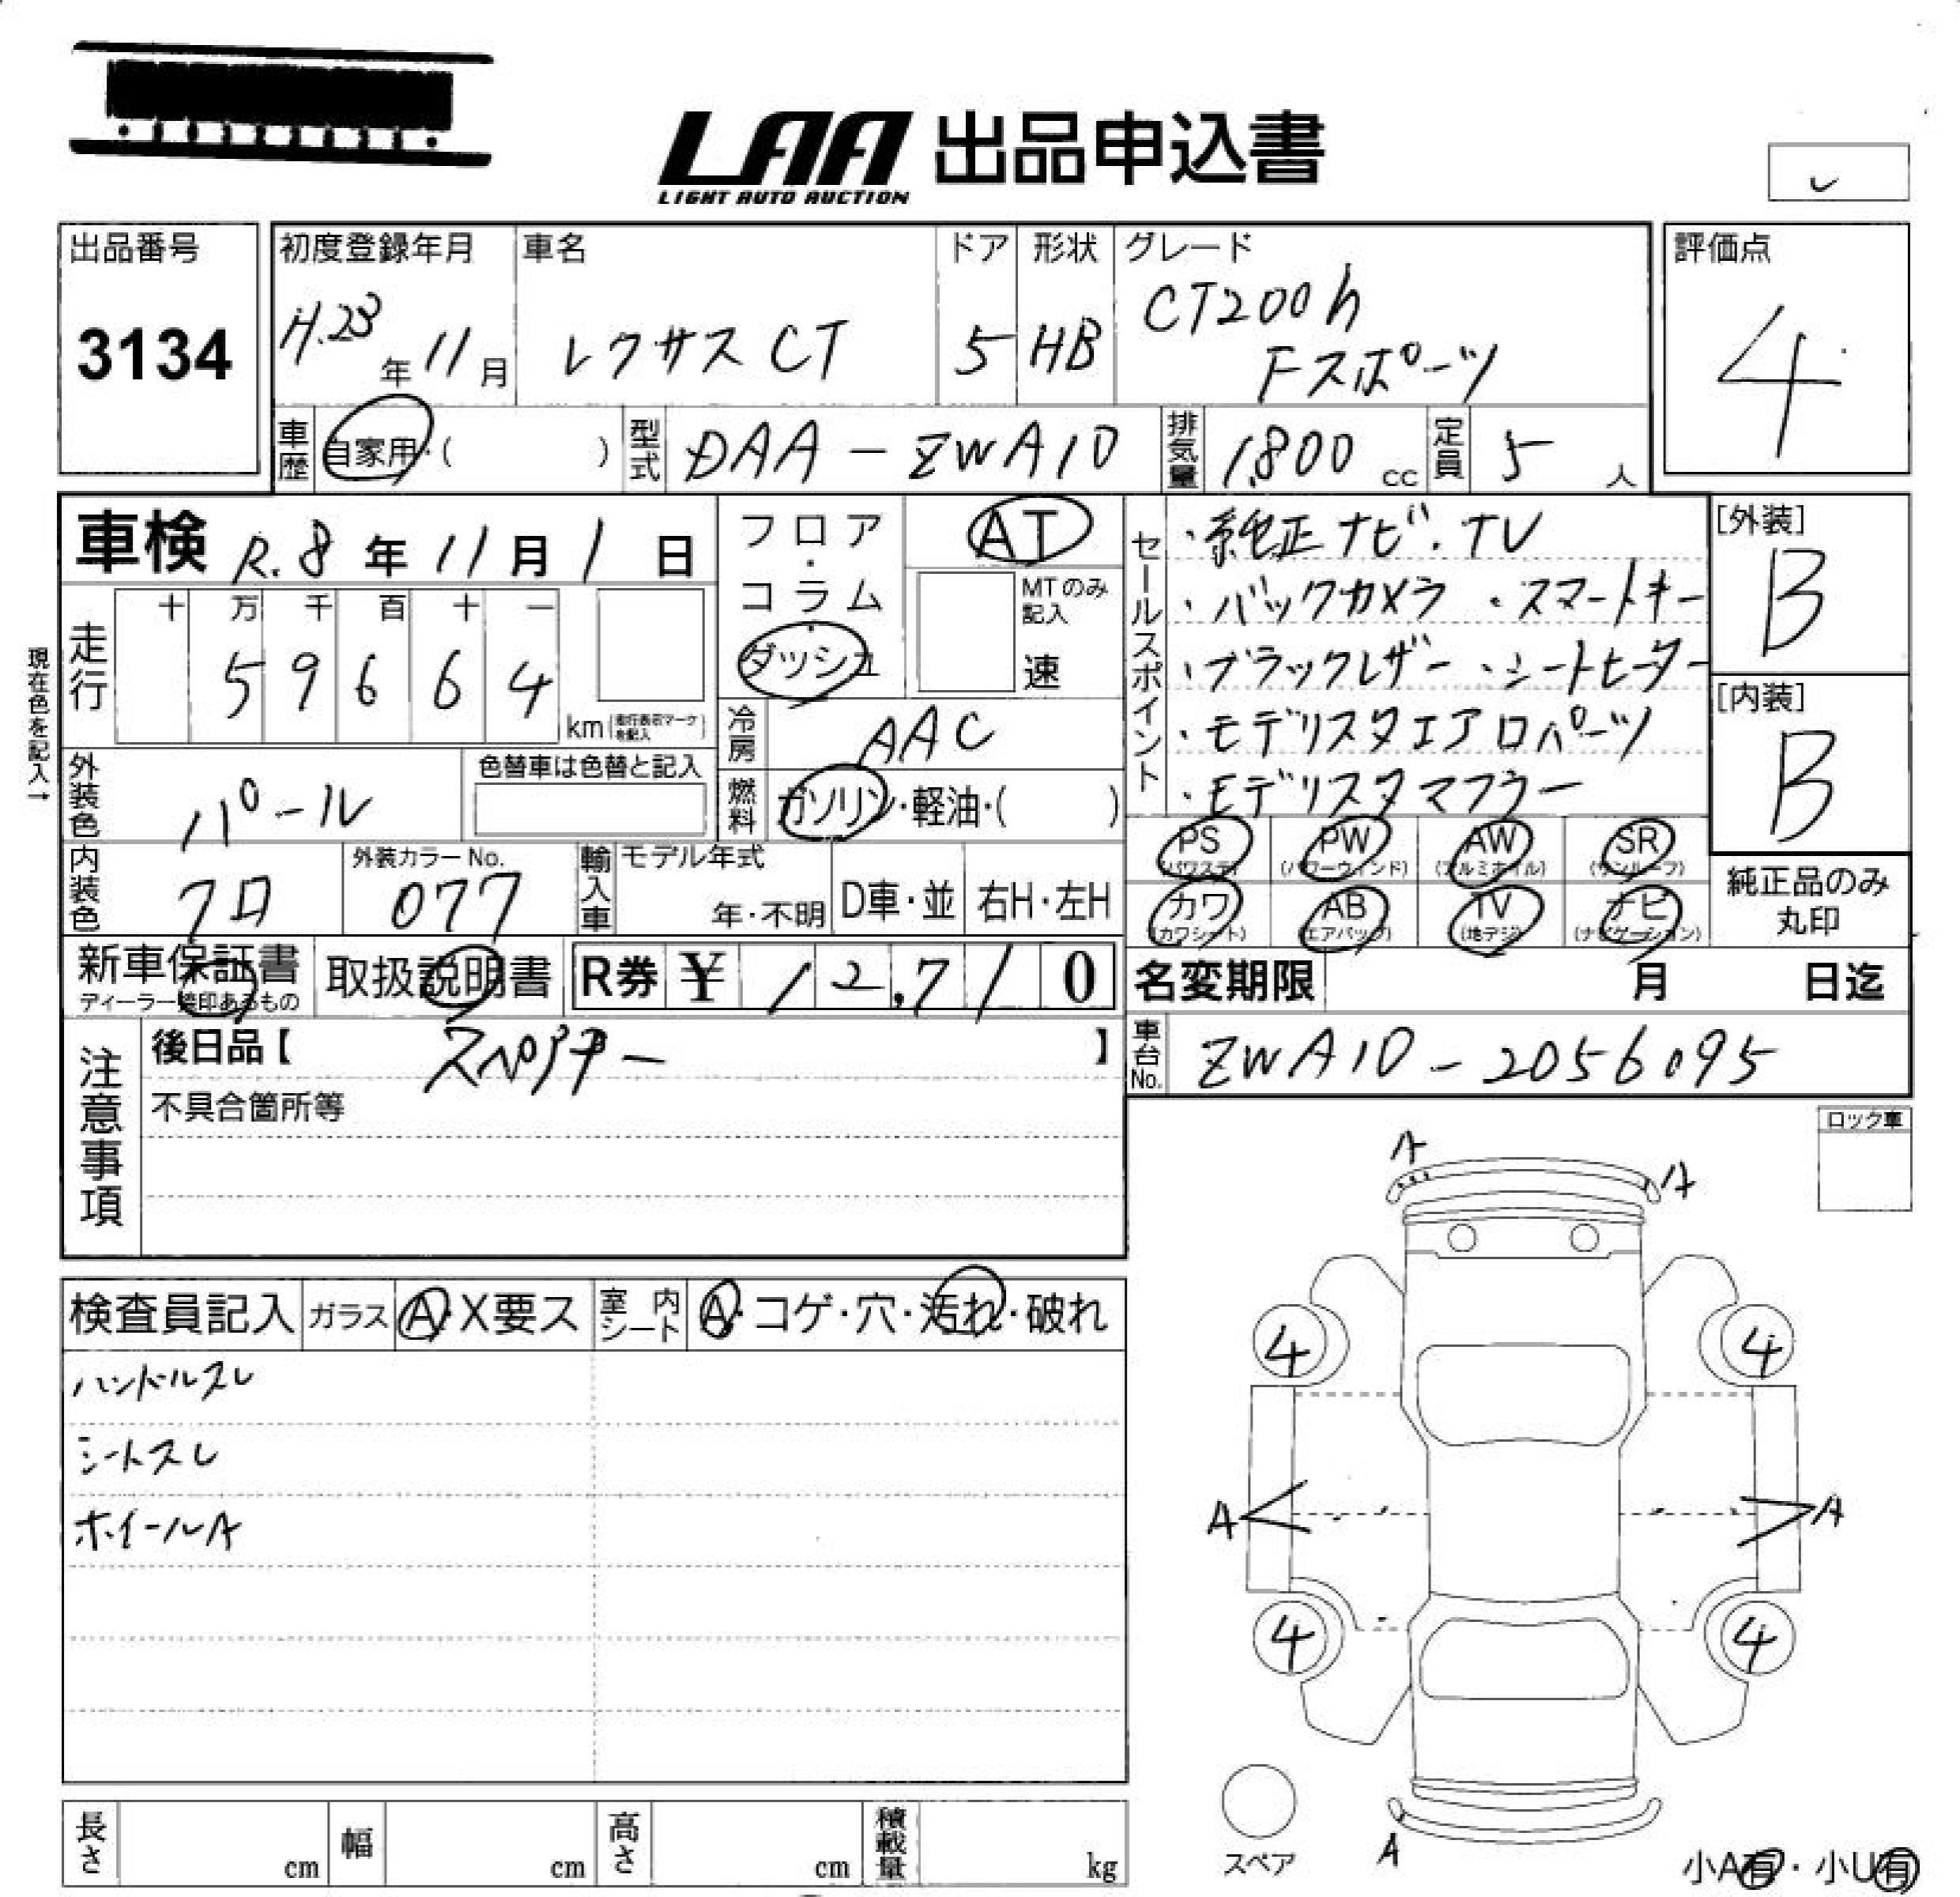 LAA 出品申込書
LIGHT AUTO AUCTION
出品番号
3134
初度登録年月
H.23年11月
車名
レクサス CT
ドア
5
形状
HB
グレード
CT200h
Fスポーツ
評価点
4
車歴
自家用・( )
型式
DAA-ZWA10
排気量
1,800 cc
定員
5人
車検 R.8年11月1日
現在色を記入→
走行
十 万 千 百 十 一
5 9 6 6 4
km (走行表示マークを記入)
フロア・コラム・ダッシュ
AT
MTのみ記入
速
冷房
AAC
燃料
ガソリン・軽油・( )
外装色
パール
色替車は色替と記入
内装色
クロ
外装カラーNo.
077
輸入車
モデル年式
年・不明
D車・並
右H・左H
セールスポイント
・純正ナビ・TV
・バックカメラ ・スマートキー
・ブラックレザー ・シートヒーター
・モデリスタエアロパーツ
・モデリスタマフラー
[外装]
B
[内装]
B
PS (パワステ)
PW (パワーウィンド)
AW (アルミホイル)
SR (サンルーフ)
カワ (カワシート)
AB (エアバッグ)
TV (地デジ)
ナビ (ナビゲーション)
純正品のみ
丸印
新車保証書
ディーラー捺印あるもの
取扱説明書
R券 ¥ 12,710
名変期限 月 日迄
車台No.
ZWA10-2056095
注意事項
後日品【 】
不具合箇所等
ロック車
検査員記入
ガラス
A・X要ス
室内シート
A・コゲ・穴・汚れ・破れ
ハンドルスレ
シートスレ
ホイールA
A
A
4
4
A
A
4
4
A
スペア
小A有・小U有
長さ cm
幅 cm
高さ cm
積載量 kg